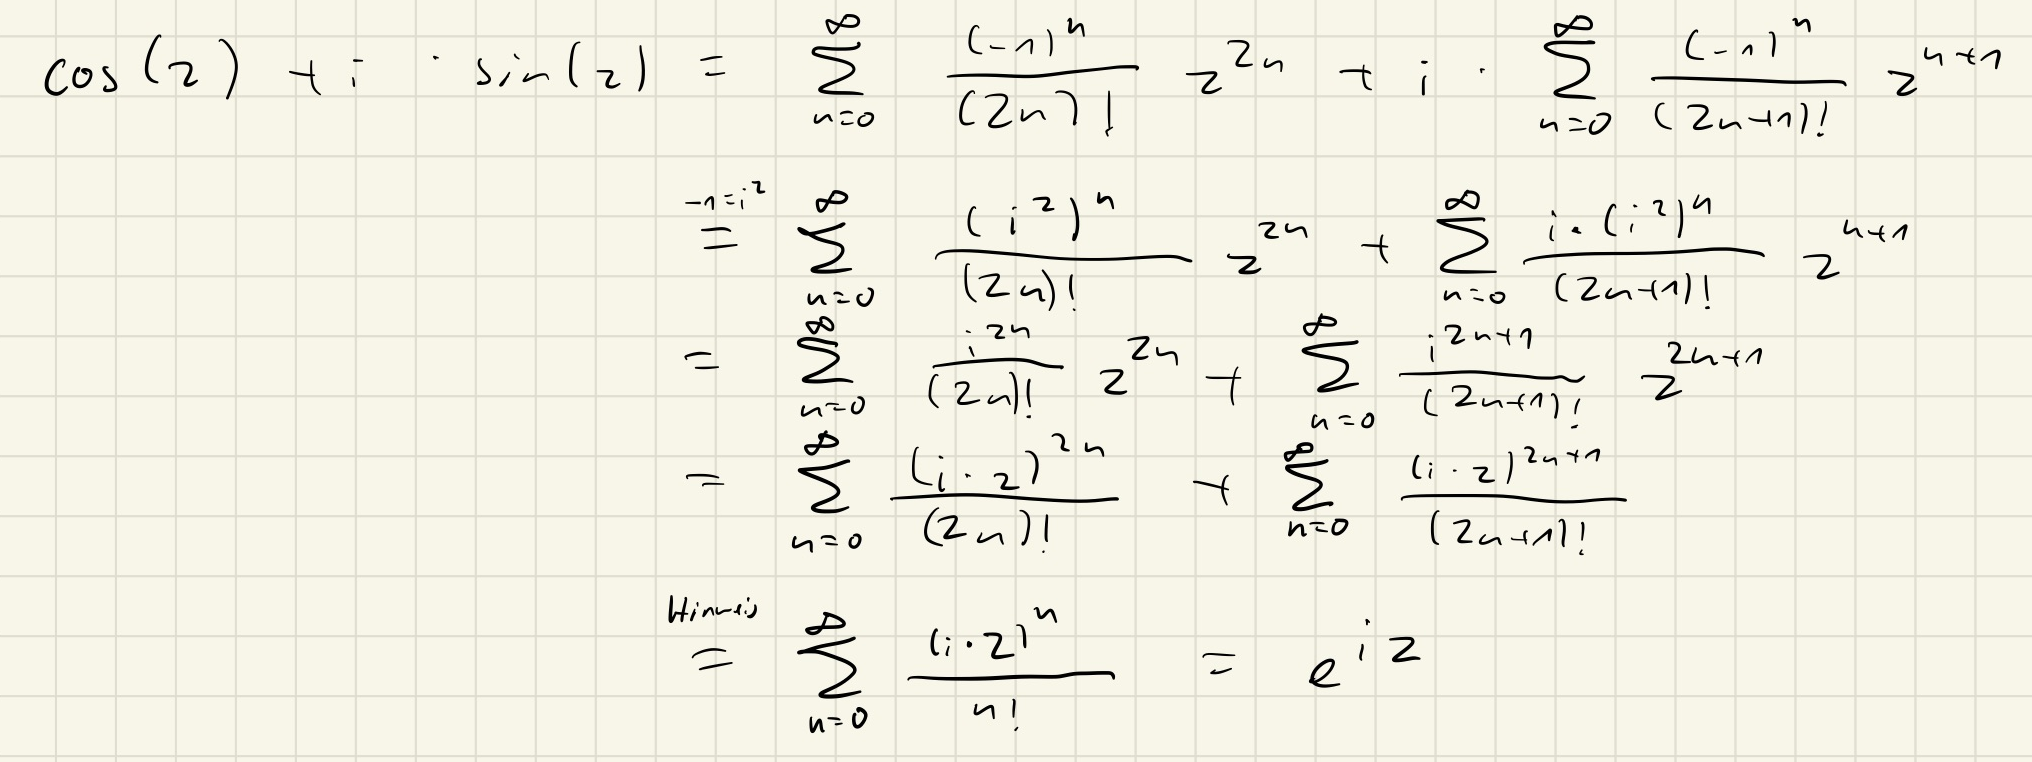 cos(z) + i · sin(z) = ∑_{n=0}^{∞} \frac{(-1)^n}{(2n)!} z^{2n} + i · ∑_{n=0}^{∞} \frac{(-1)^n}{(2n+1)!} z^{n+1}
\overset{-1=i^2}{=} ∑_{n=0}^{∞} \frac{(i^2)^n}{(2n)!} z^{2n} + ∑_{n=0}^{∞} \frac{i·(i^2)^n}{(2n+1)!} z^{n+1}
= ∑_{n=0}^{∞} \frac{i^{2n}}{(2n)!} z^{2n} + ∑_{n=0}^{∞} \frac{i^{2n+1}}{(2n+1)!} z^{2n+1}
= ∑_{n=0}^{∞} \frac{(i·z)^{2n}}{(2n)!} + ∑_{n=0}^{∞} \frac{(i·z)^{2n+1}}{(2n+1)!}
\overset{Hinweis}{=} ∑_{n=0}^{∞} \frac{(i·z)^n}{n!} = e^{iz}